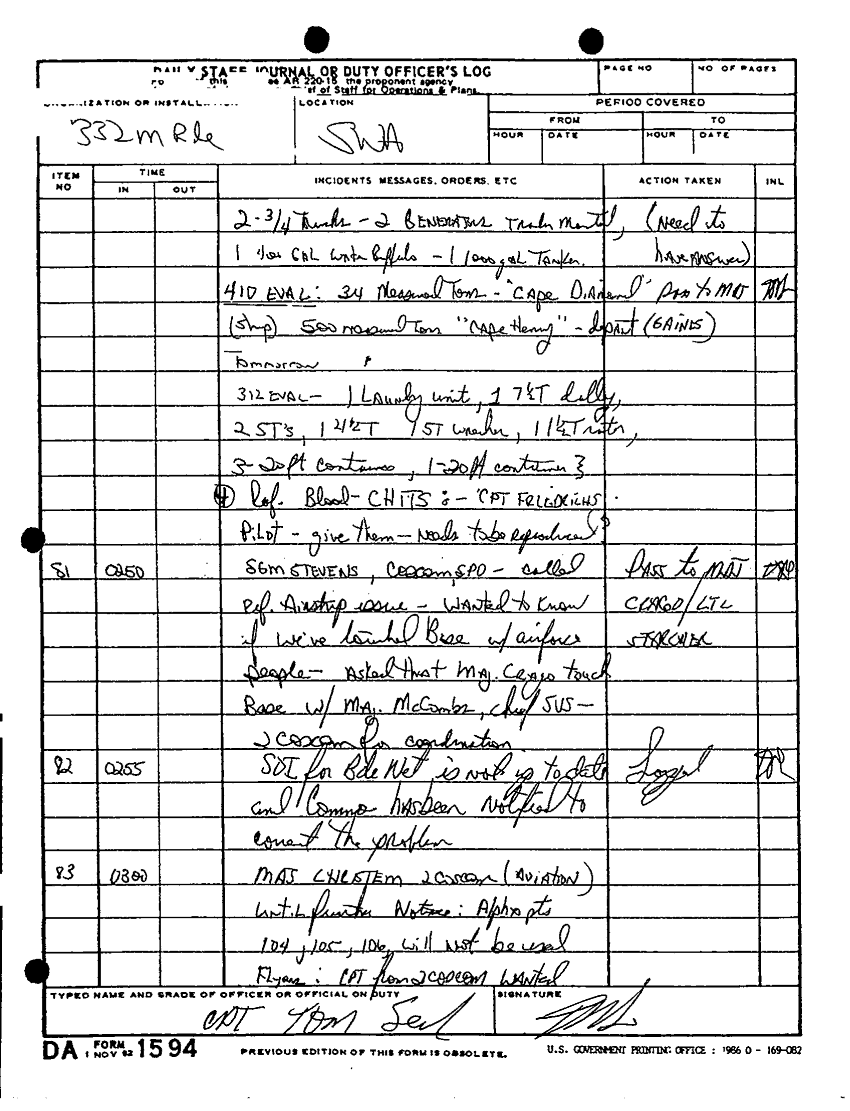 DAILY STAFF JOURNAL OR DUTY OFFICER'S LOG
this AR 220-15 the proponent agency
of Staff for Operations & Plans.
PAGE NO
NO OF PAGES
ORGANIZATION OR INSTALLATION
332 M Bde
LOCATION
SWA
PERIOD COVERED
FROM
TO
HOUR
DATE
HOUR
DATE
ITEM NO
TIME
IN
OUT
INCIDENTS MESSAGES, ORDERS, ETC
ACTION TAKEN
INL
2-3/4 Trucks - 2 GENERATORS Trailer Mounted, (Need to
1 400 GAL Water Buffalo - 1 1000 gal Tanker. have ANSWER)
410 EVAL: 34 Measured Tons - "Cape Diamond" Pass to MAJ
(Ship) 500 measured Tons "Cape Henry" - depart (GAINES)
Tomorrow
312 EVAL- 1 Laundry unit, 1 7½T dolly,
2 5T's, 1 2½T 1 5T wrecker, 1 1½T
3-20ft containers, 1-20ft container
④ Ref. Blood-CHITS :- CPT FRIEDRICHS
Pilot - give them - Needs to be reproduced
81 0250 SGM STEVENS, COSCOM, SPO - called PASS to MAJ
Ref. Airstrip issue - WANTED to Know CRAGO/LTC
if we've touched Base w/ airforce STARCHER
people- Asked that MAJ. Crago touch
Base w/ MAJ. McCombs, chief SVS-
2 COSCOM for coordination.
82 0255 SOI for Bde Net is not up to date Logged
and Commo has been Notified to
correct the problem
83 0300 MAJ 2 COSCOM (AVIATION)
Until further Notice: Alpha pts
104, 105, 106, will not be used
Flyers: CPT from 2 COSCOM WANTED
TYPED NAME AND GRADE OF OFFICER OR OFFICIAL ON DUTY
CPT TOM
SIGNATURE
DA FORM 1 NOV 62 1594
PREVIOUS EDITION OF THIS FORM IS OBSOLETE.
U.S. GOVERNMENT PRINTING OFFICE : 1986 O - 169-082